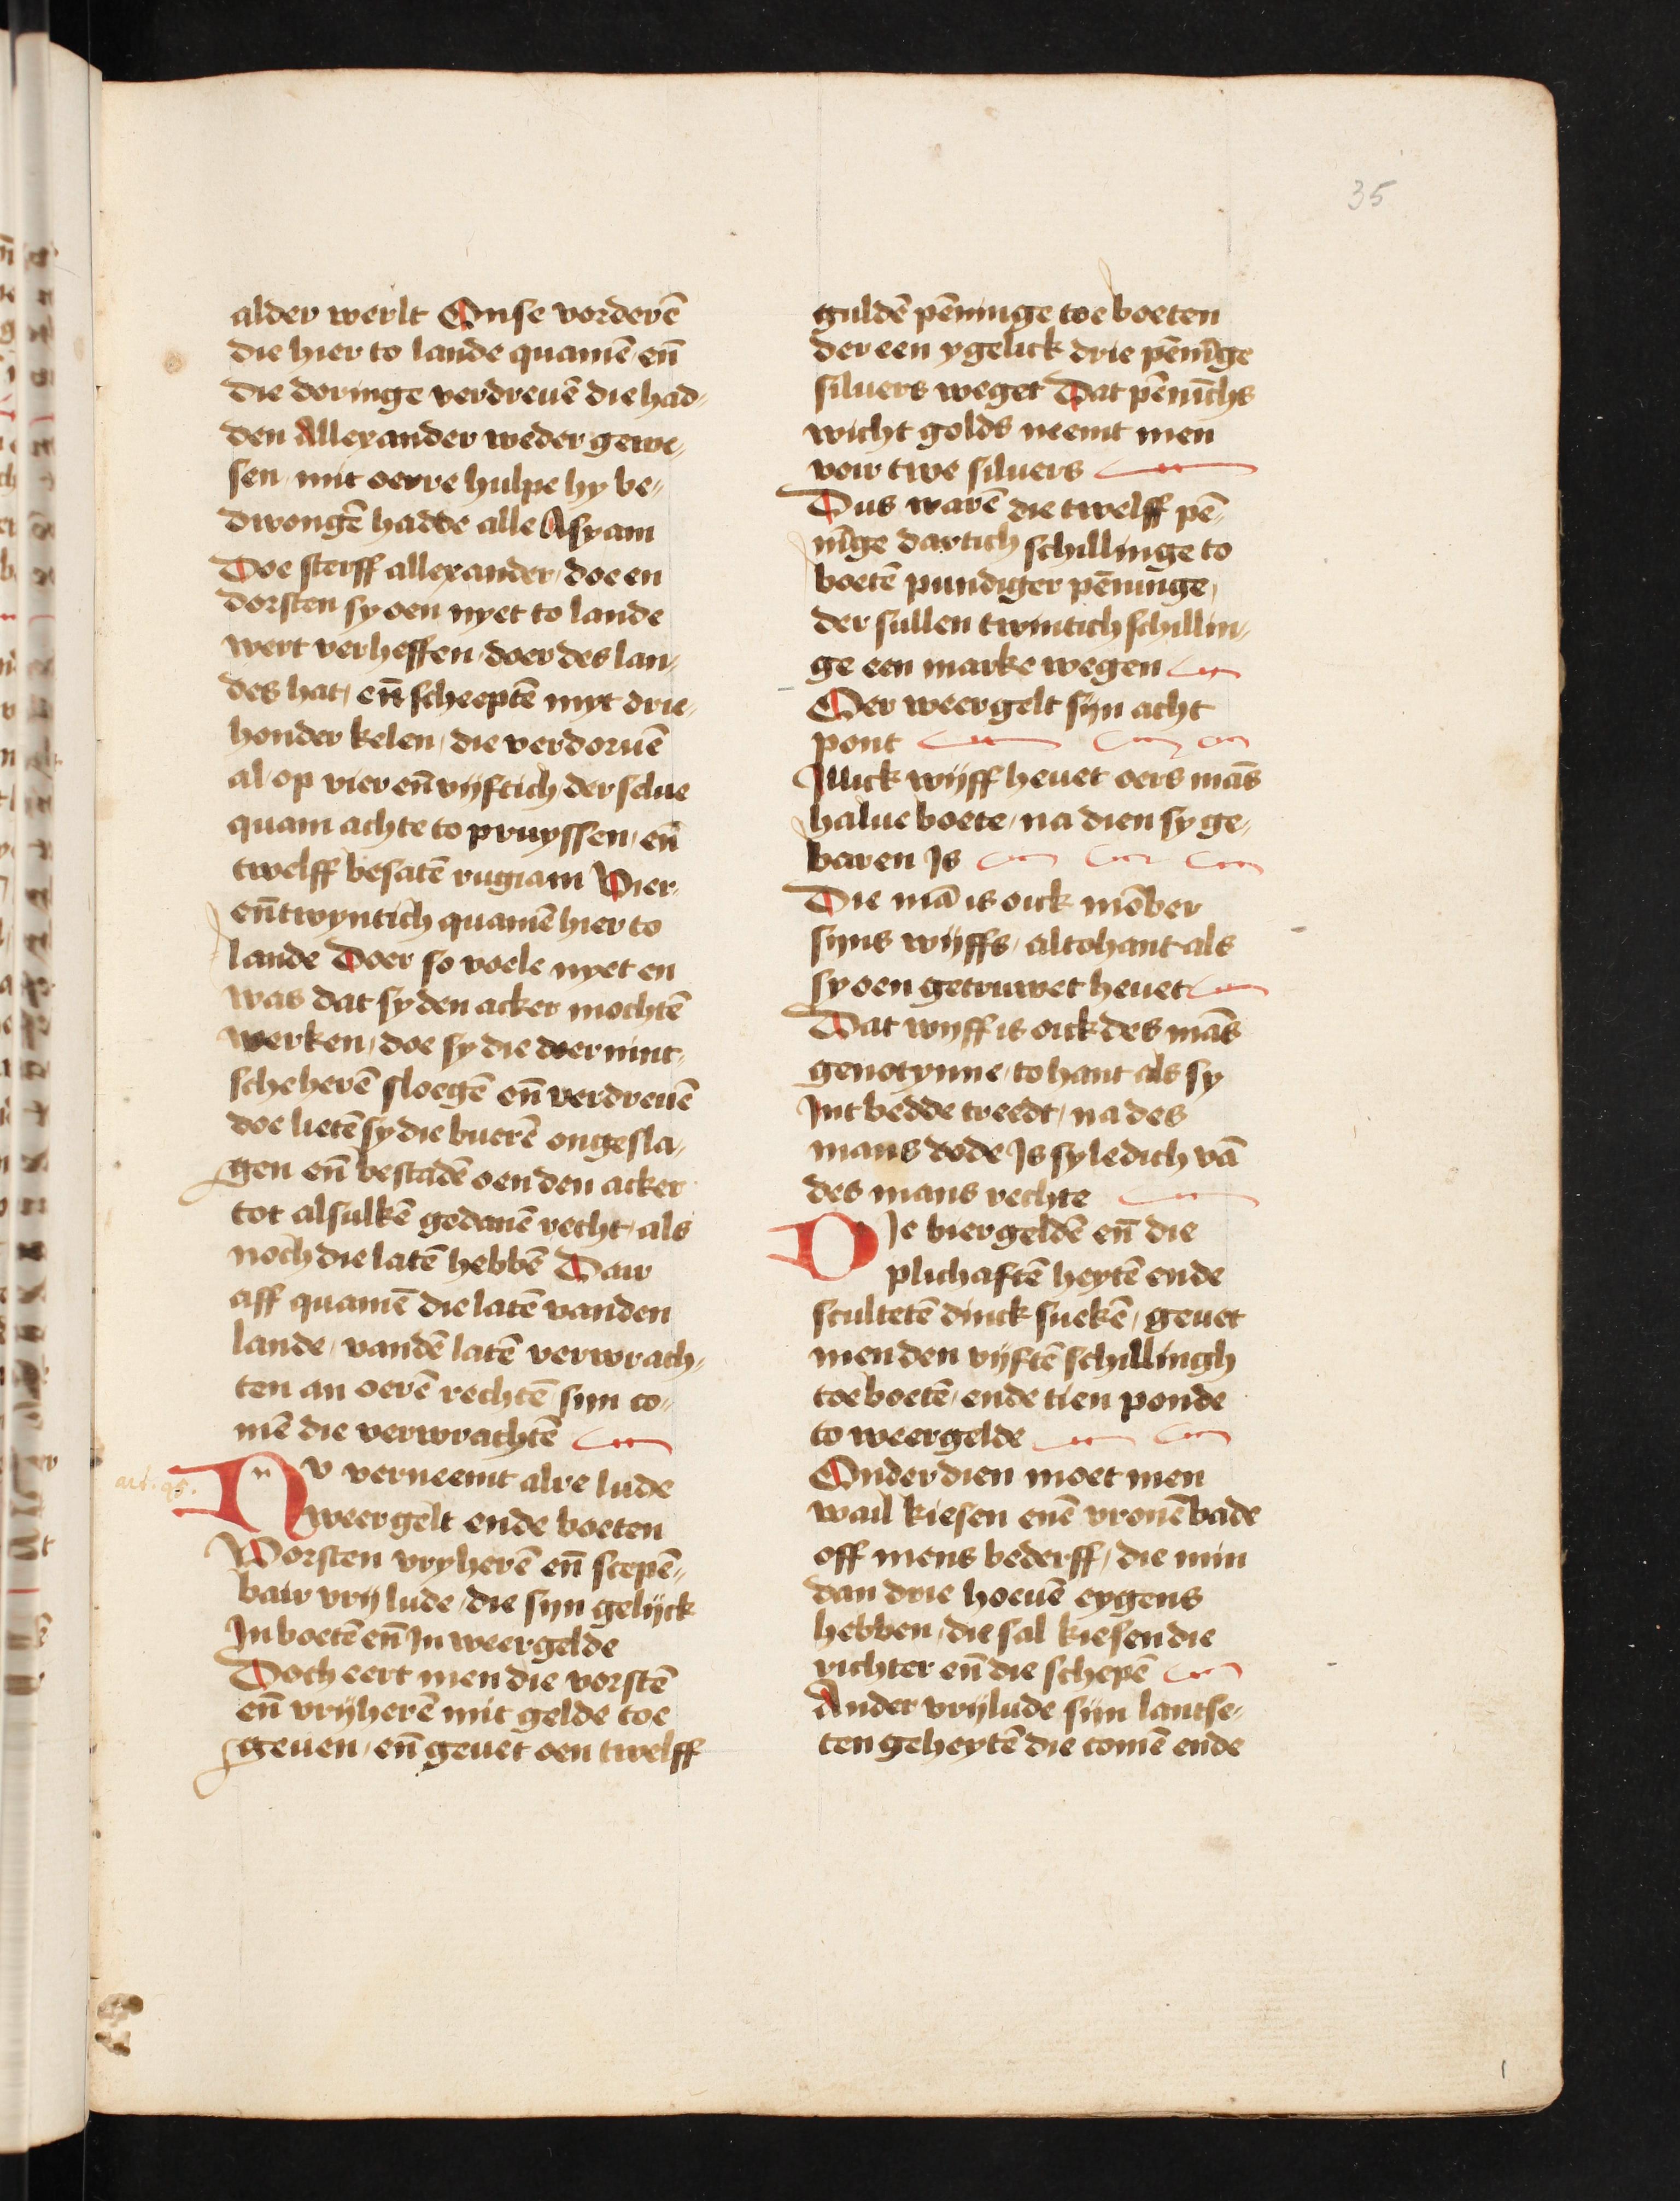 35
alder werlt Onse vorderē
die hier to lande quamē en̄
die doringe verdreuē die had⸗
den Allexander weder gewe⸗
sen mit oerre hulpe hy be⸗
dwongē hadde alle Asyam
Doe sterff allexander doe en
dorsten sy oen nyet to lande
wert verheffen doer des lan⸗
des hat en̄ scheeptē myt drie⸗
honder kelen die verdoruē
al op vier en̄ vijftich der selue
quam achte to pruyssen en̄
twelff besatē rugiam Vier⸗
en̄ twyntich quamē hier to
lande Doer so voele nyet en
was dat sy den acker mochtē
werken doe sy die doerinnt⸗
sche herē sloegē en̄ verdreuē
doe lietē sy die buerē ongesla⸗
gen en̄ bestadē oen den acker
tot alsulkē gedanē recht als
noch die latē hebbē Dair
aff quamē die latē vanden
lande vandē latē verwrach⸗
ten an oerē rechtē sijn co⸗
mē die verwrachtē
art. 95.
Nv verneemt alre lude
weergelt ende boeten
Vorsten vryherē en̄ scepē⸗
bair vrij lude die sijn gelijck
In boetē en̄ In weergelde
Doch eert men die vorstē
en̄ vrijherē mit gelde toe
geuen en̄ geuet oen twelff
guldē pēninge toe boeten
der een ygelick drie pēnīge
siluers weget Dat pēnīchs
wicht golds neemt men
voir twe siluers
Dus warē die twelff pē⸗
nīge dartich schillinge to
boetē pundiger pēninge
der sullen twintich schillin⸗
ge een marke wegen
Oer weergelt sijn acht
pont
Illick wijff heuet oers mās
halue boete na dien sy ge⸗
baren Is
Die mā is oick mōber
sijns wijffs altohant als
sy oen getruwet heuet
Dat wijff is oick des mās
genotynne tohant als sy
Int bedde treedt na des
mans dode Is sy ledich vā
des mans rechte
DIe biergeldē en̄ die
plichaftē heytē ende
scultetē dinck suekē geuet
men den vijftē schillingh
toe boetē ende tien ponde
to weergelde
Onder dien moet men
wail kiesen enē vronē bade
off mens bederff die min
dan drie hoeuē eygens
hebben die sal kiesen die
richter en̄ die schepē
Ander vrijlude sijn lantse⸗
ten geheytē die comē ende